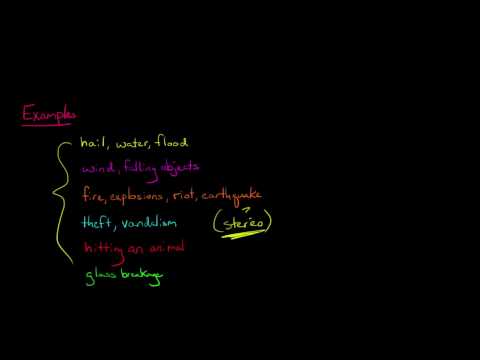 Examples
hail, water, flood
wind, falling objects
fire, explosions, riot, earthquake
theft, vandalism (stereo)
hitting an animal
glass breakage